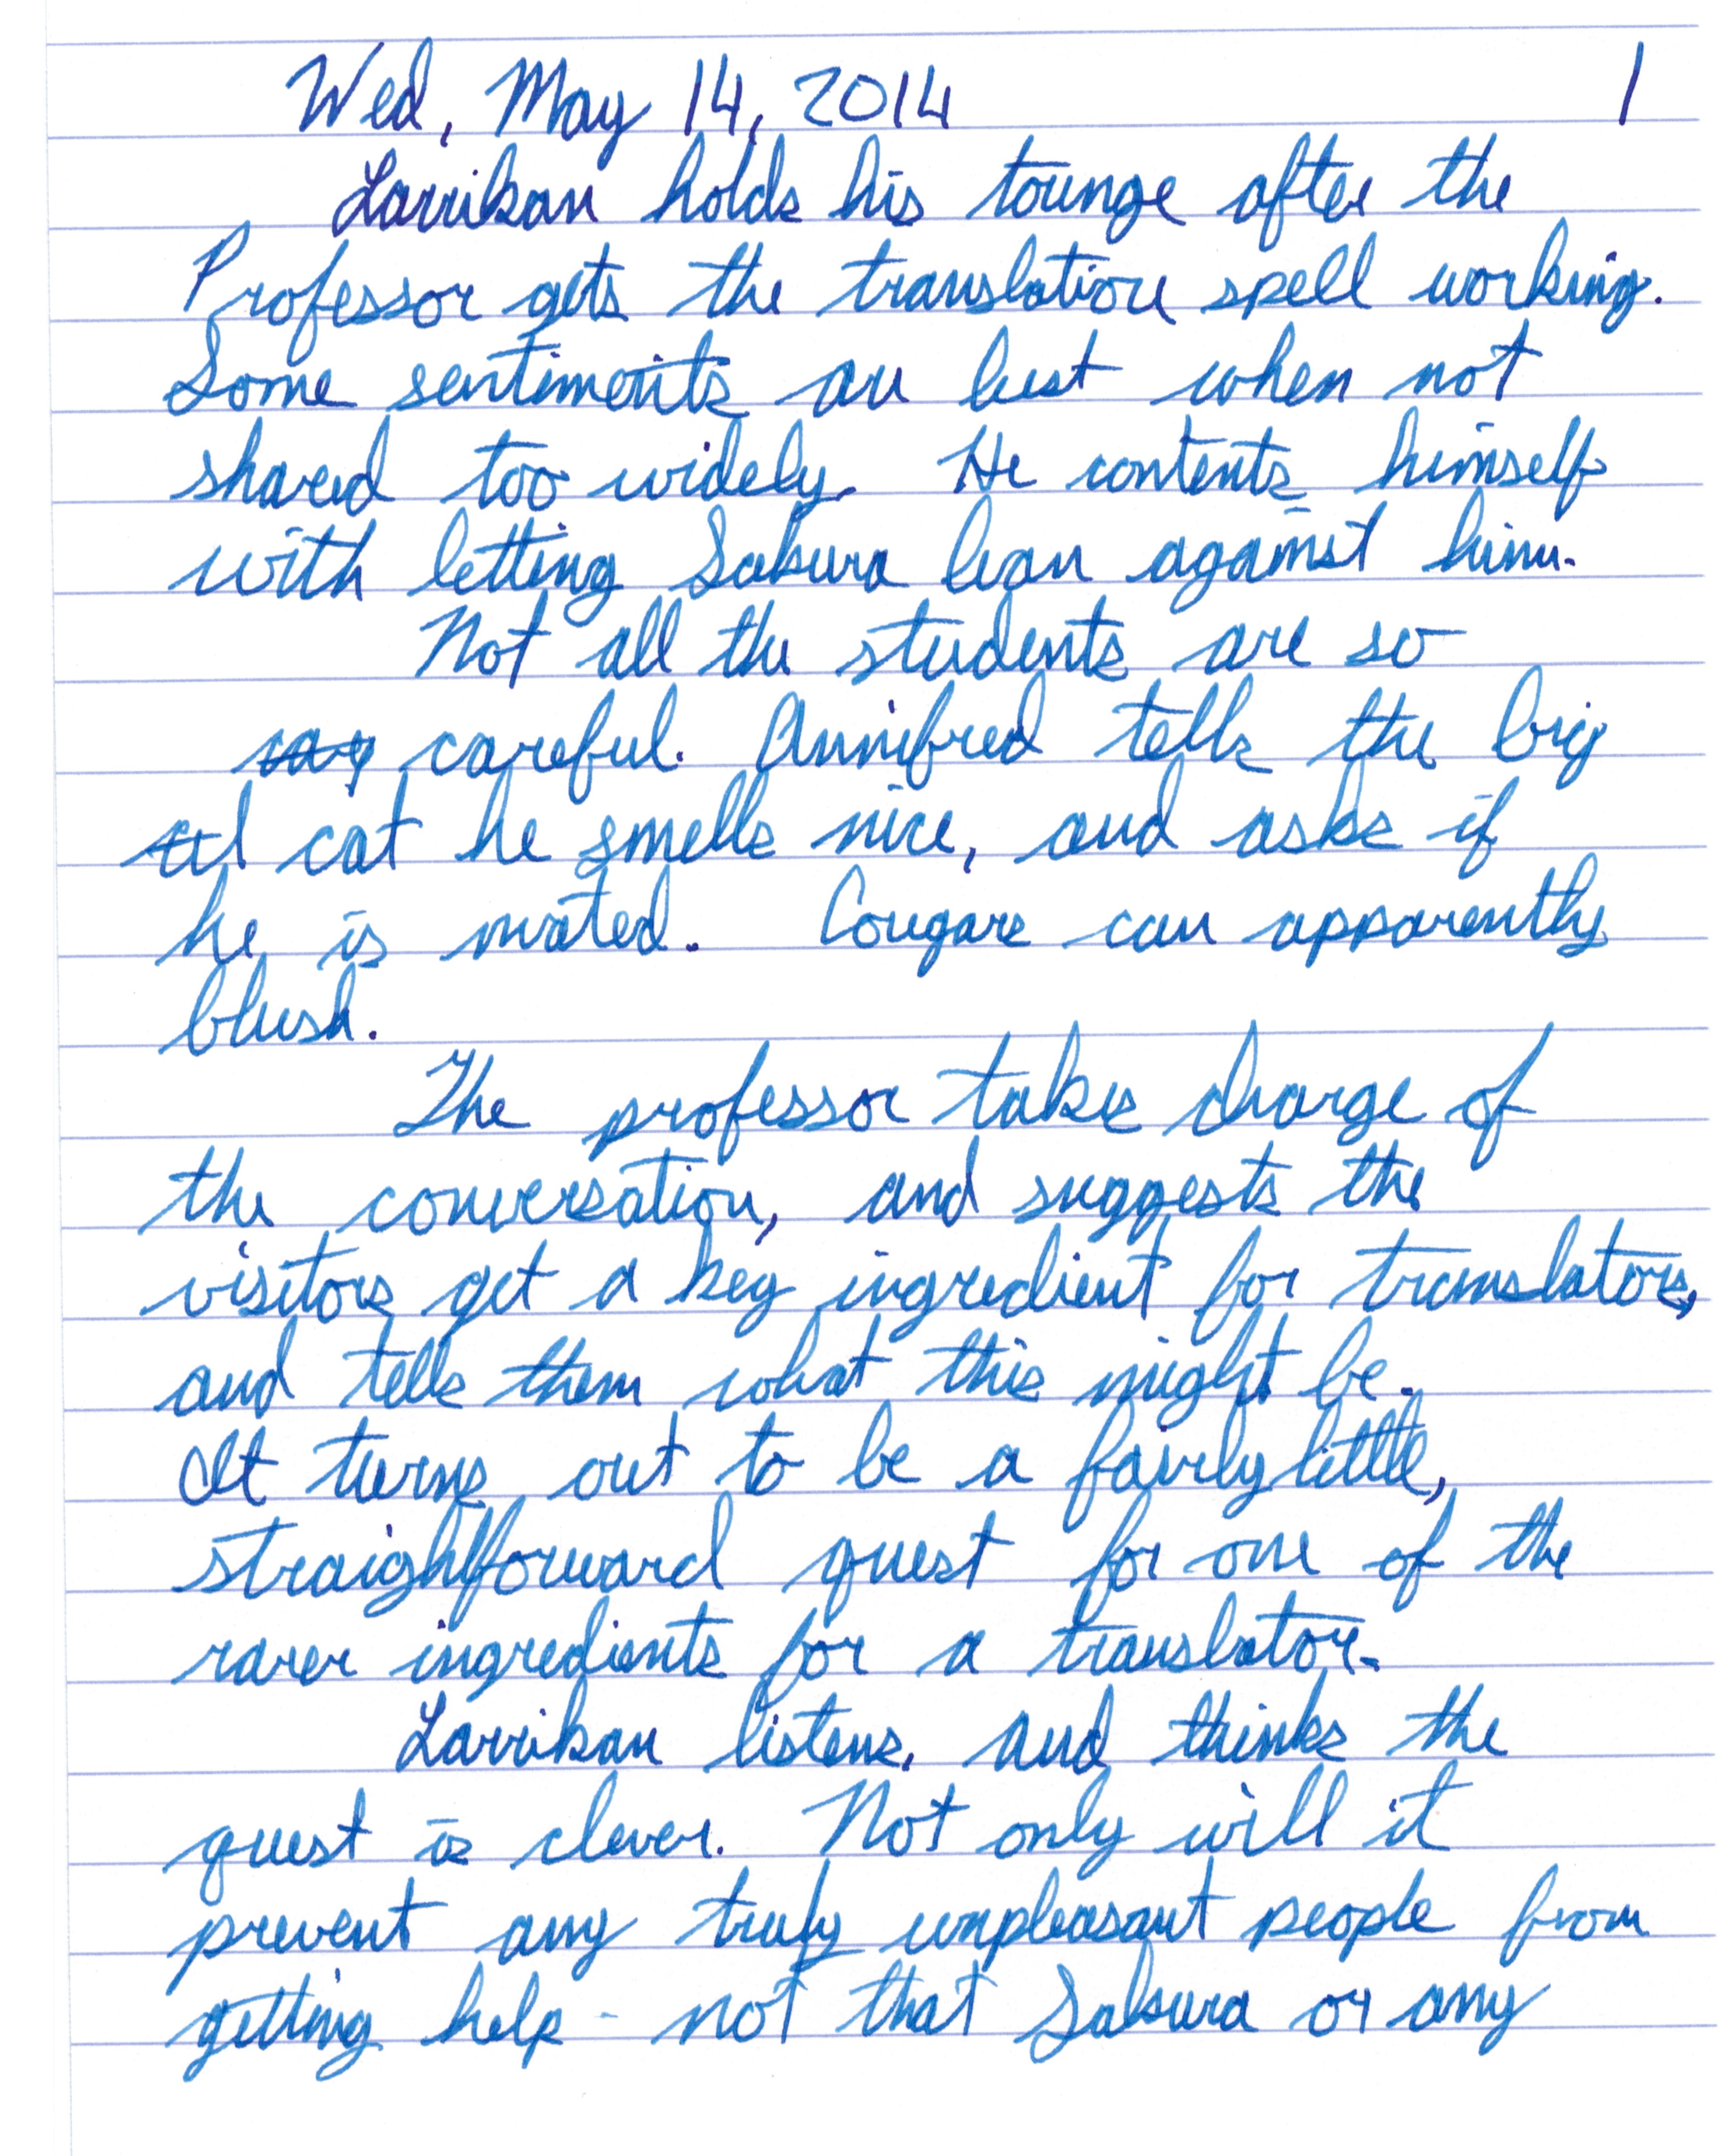 Wed, May 14, 2014 1
Larrikan holds his tounge after the
Professor gets the translation spell working.
Some sentiments are best when not
shared too widely. He contents himself
with letting Sakura lean against him.
Not all the students are so
careful. Annifred tells the big
cat he smells nice, and asks if
he is mated. Cougars can apparently
blush.
The professor takes charge of
the conversation, and suggests the
visitors get a key ingredient for translators,
and tells them what this might be.
It turns out to be a fairly little,
straightforward quest for one of the
rarer ingredients for a translator.
Larrikan listens, and thinks the
quest is clever. Not only will it
prevent any truly unpleasant people from
getting help - not that Sakura or any